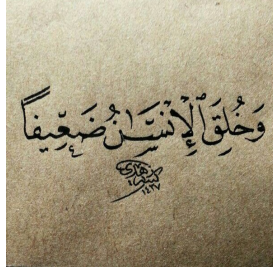 وَخُلِقَ ٱلْإِنسَٰنُ ضَعِيفًا